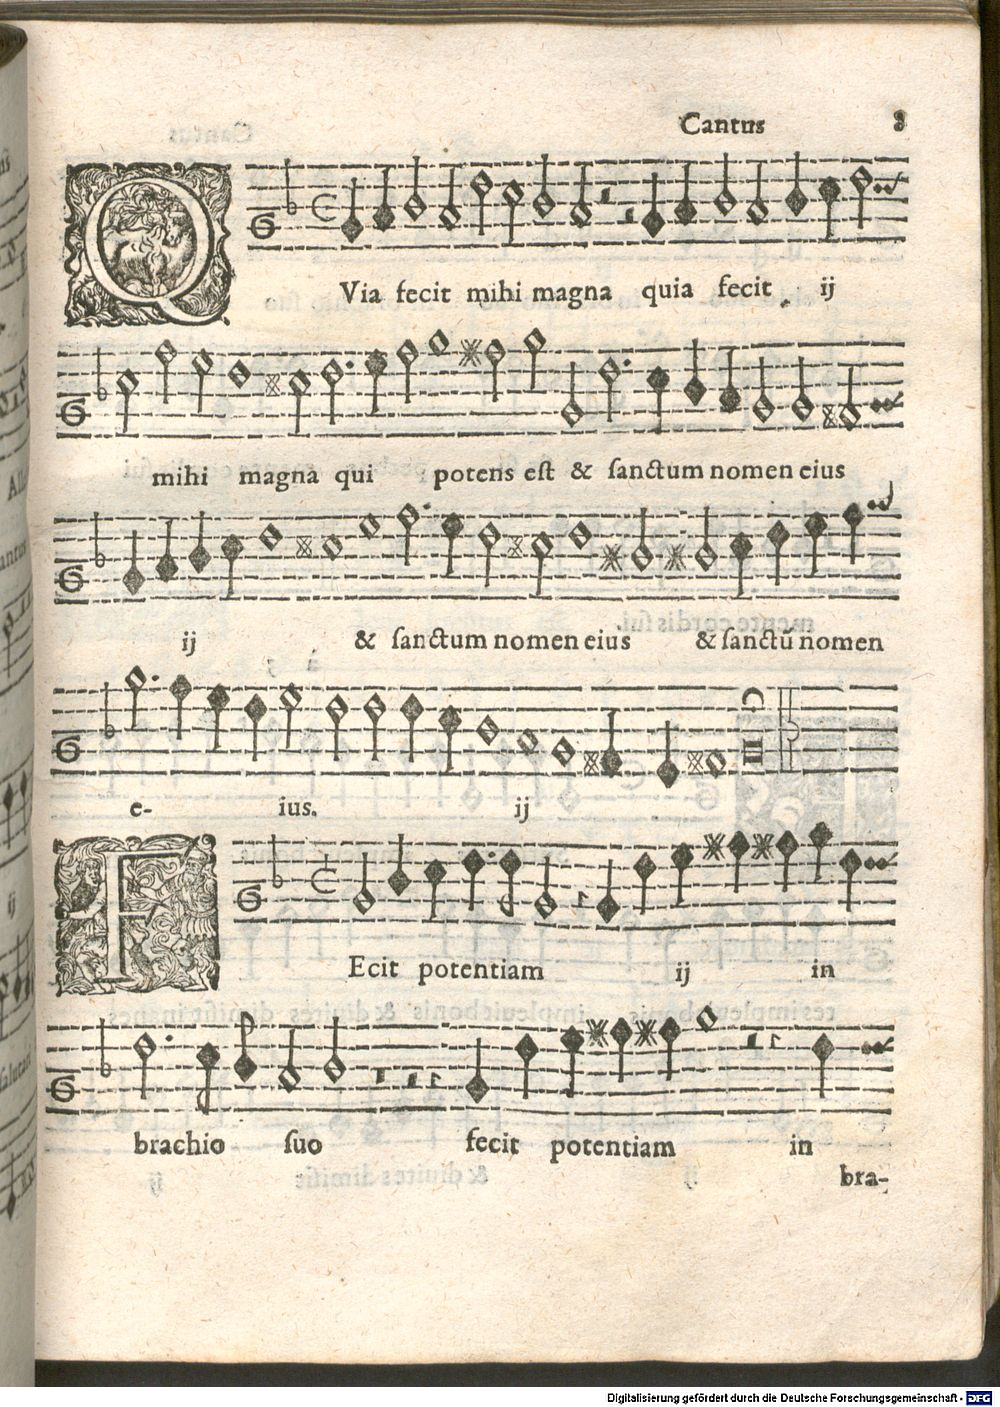 Cantus 8
QVia fecit mihi magna quia fecit ij
mihi magna qui potens est & sanctum nomen eius
ij & sanctum nomen eius & sanctū nomen
e- ius. ij
FEcit potentiam ij in
brachio suo fecit potentiam in
bra-
Digitalisierung gefördert durch die Deutsche Forschungsgemeinschaft - DFG